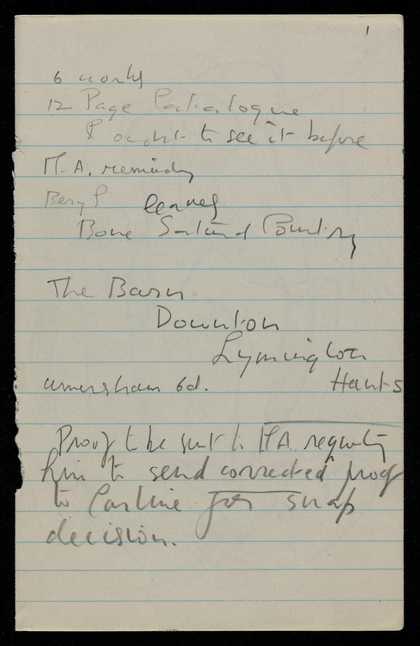 1
6 works
12 Page Catalogue
I ought to see it before
M.A. reminding
Beryl leaves
Bone
The Barn
Downton
Lymington
Amersham 6d. Hants
Proof to be sent to M.A. requesting
him to send corrected proof
to Carline for snap
decision.